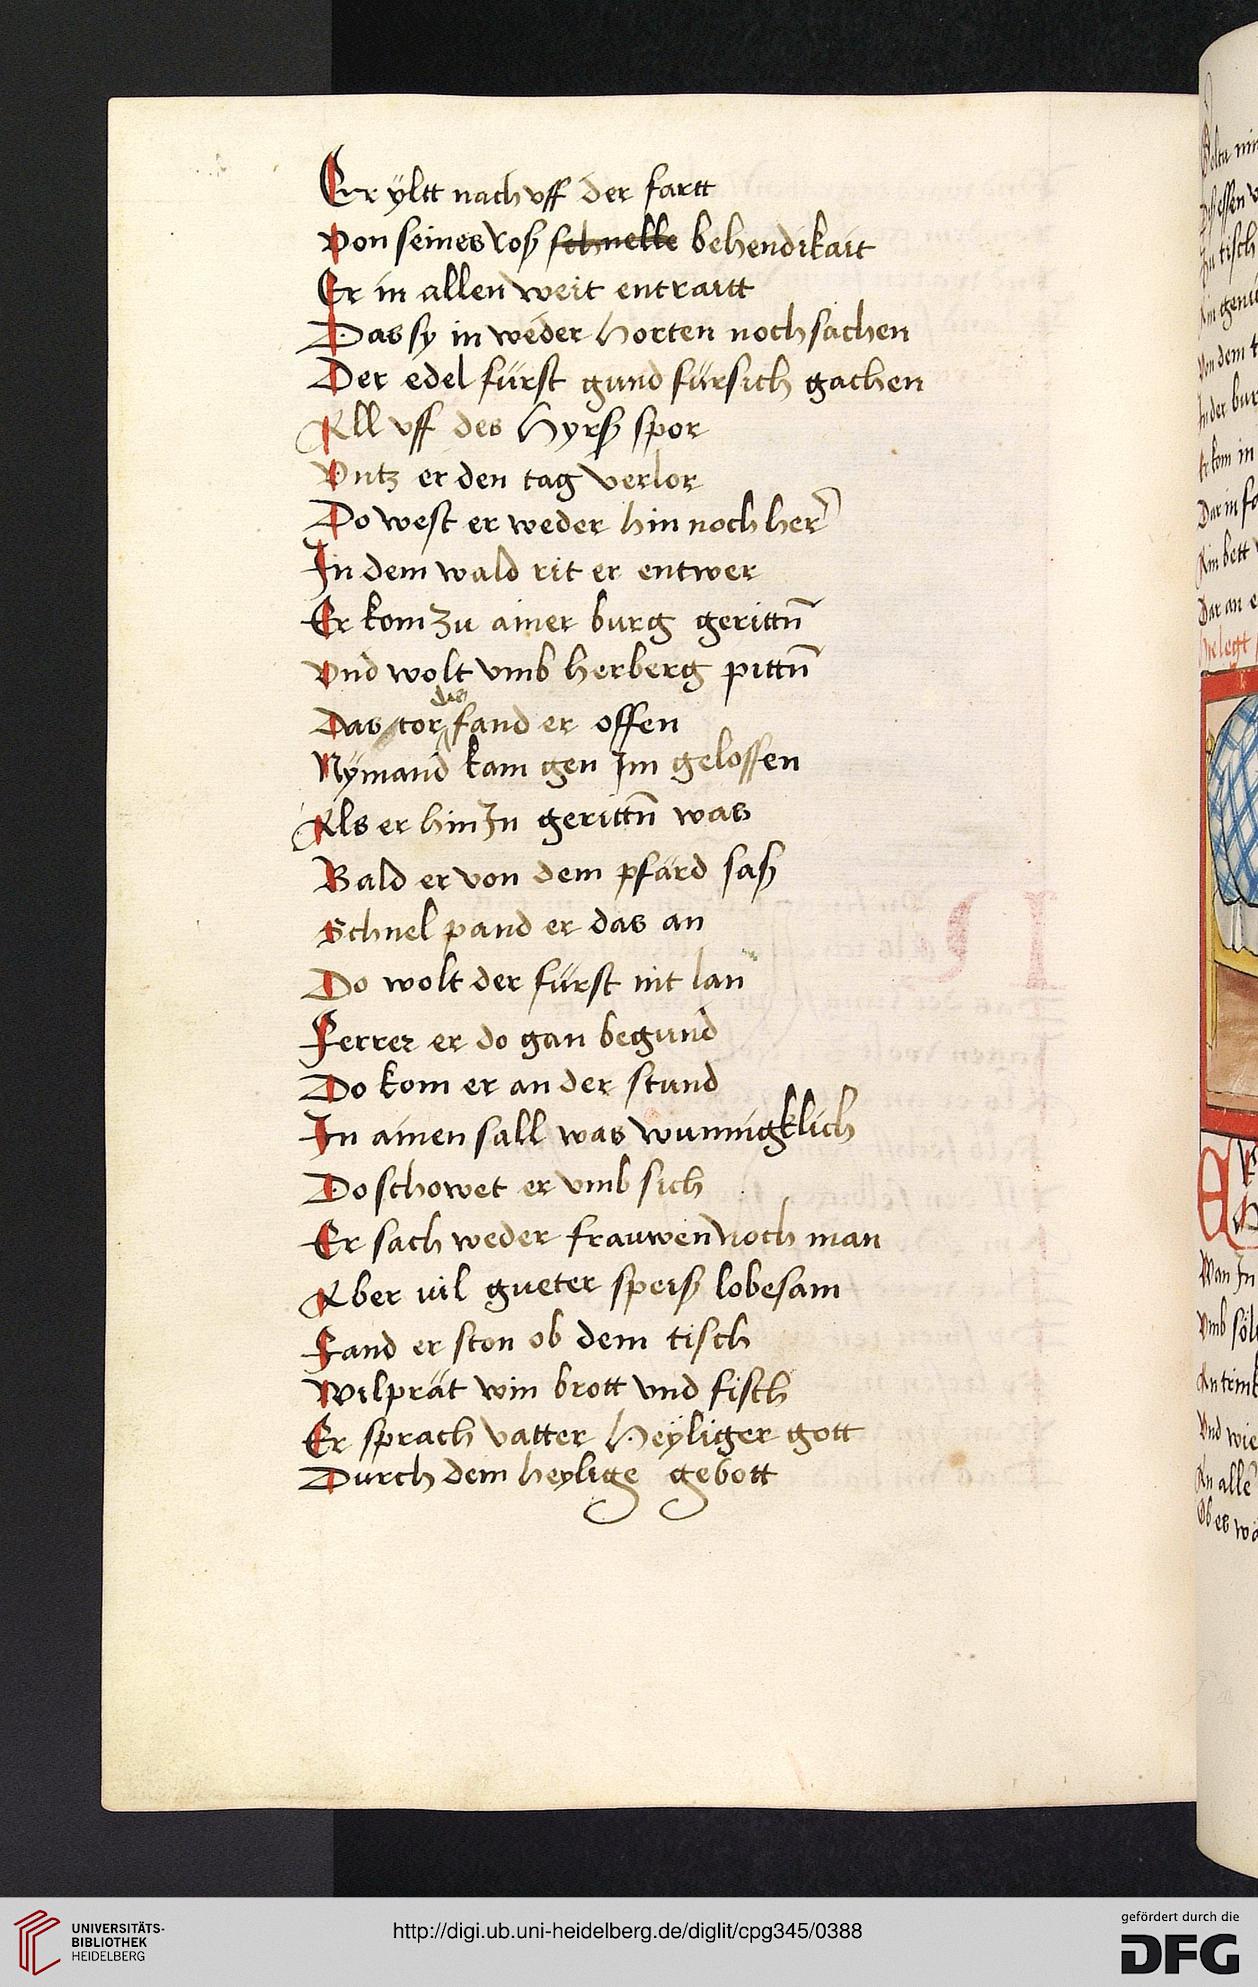 Er ÿltt nach vff der fartt
Von seines roß schnelle behendikait
Er in allen weit entraitt
Das sy in weder horten noch sachen
Der edel fürst gund für sich gachen
All vff des Hyrß spor
Vntz er den tag verlor
Do west er weder hin noch her
In dem wald rit er entwer
Er kom zu ainer burg gerittn̄
Vnd wolt vmb herberg pittn̄
Das tor das fand er offen
Nÿmand kam gen Im geloffen
Als er hin In gerittn̄ was
Bald er von dem pfärd saß
Schnel pand er das an
Do wolt der fürst nit lan
Ferrer er do gan begund
Do kom er an der stund
In ainen sall was wunnigklich
Do schowet er vmb sich
Er sach weder frauwen noch man
Aber vil gueter speiß lobesam
Fand er ston ob dem tisch
Wilprät win brott vnd fisch
Er sprach vatter Heÿliger gott
Durch dem heylige gebott
Zu tisch
Von dem
In der bur
Er kom in
Ain bett
Dar an
Wan In
Vmb söl
Vnd wie
An alle
Ob es wa
UNIVERSITÄTS-
BIBLIOTHEK
HEIDELBERG
http://digi.ub.uni-heidelberg.de/diglit/cpg345/0388
gefördert durch die
DFG